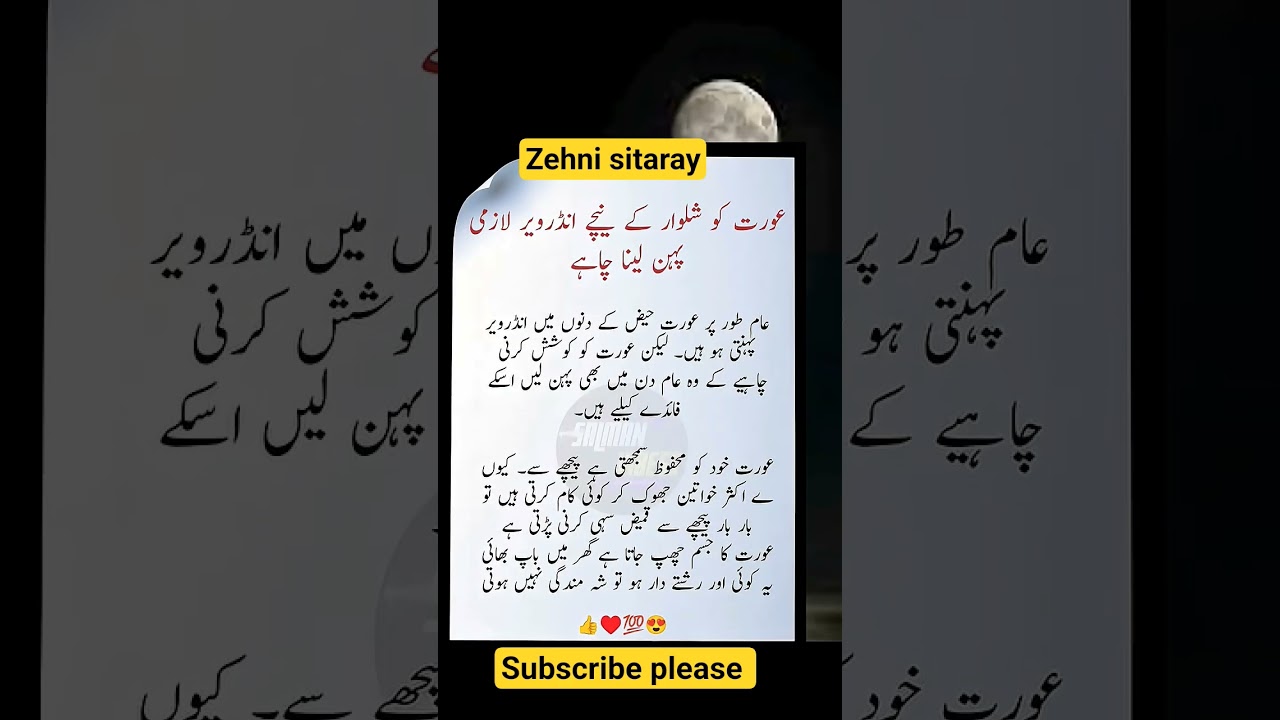 Zehni sitaray
عورت کو شلوار کے نیچے انڈرویر لازمی
پہن لینا چاہے
عام طور پر عورت حیض کے دنوں میں انڈرویر
پہنتی ہو ہیں۔ لیکن عورت کو کوشش کرنی
چاہیے کے وہ عام دن میں بھی پہن لیں اسکے
فائدے کیلیے ہیں۔
SALMAN
عورت خود کو محفوظ سمجھتی ہے پیچھے سے۔ کیوں
ے اکثر خواتین جھوک کر کوئی کام کرتی ہیں تو
بار بار پیچھے سے قمیض سہی کرنی پڑتی ہے
عورت کا جسم چھپ جاتا ہے گھر میں باپ بھائی
یہ کوئی اور رشتے دار ہو تو شہ مندگی نہیں ہوتی
👍♥️💯😍
Subscribe please
عام طور پر
ں میں انڈرویر
پہنتی ہو
کوشش کرنی
چاہیے کے
پہن لیں اسکے
عورت خود
پیچھے سے۔ کیوں